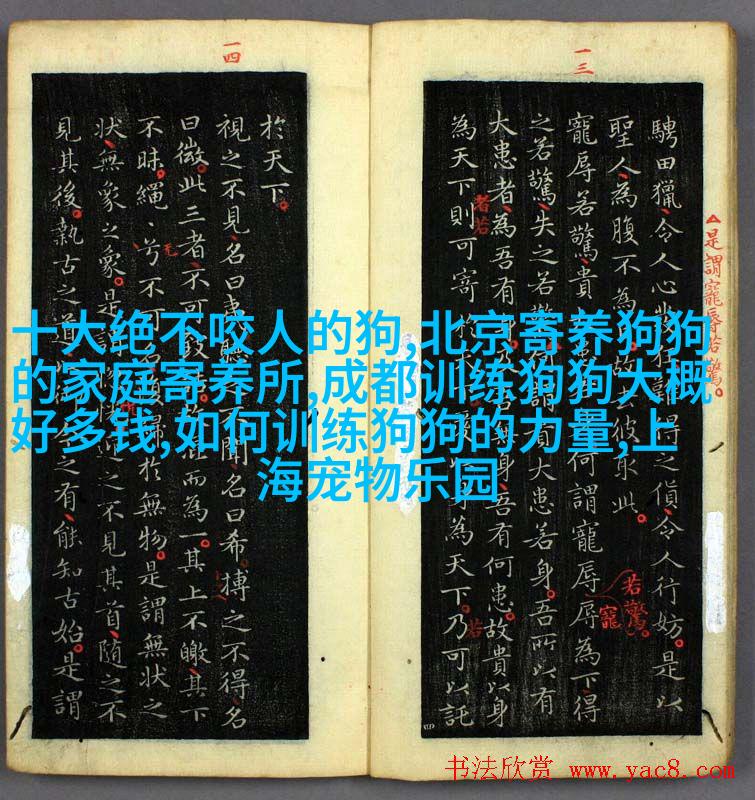 一三
△是謂寵辱若驚。
騁田獵令人心發狂難得之貨令人行妨。是以
聖人為腹不為故去彼取此。
寵辱若驚貴患何謂寵辱辱為下得
之若驚失之若驚何謂貴大患若身。吾所以有
大患者為吾有身及吾無身吾有何患。故貴以身
為天下則可寄於天下身為天下。乃可以託
者若
若驚。
寵
若
一四
於天下。
視之不見名曰夷聽之不聞名曰希搏之不得名
曰微。此三者不可致而為一。其上不皦其下
不昧。繩〻兮不可名復歸於無物。是謂無狀之
狀無象之象。是謂迎之不見其首隨之不
見其後。執古之道之有能知古始。是謂
无
十大绝不咬人的狗,北京寄养狗狗
的家庭寄养所,成都训练狗狗大概
好多钱,如何训练狗狗的力量,上
海宠物乐园
书法欣赏 www.yac8.com